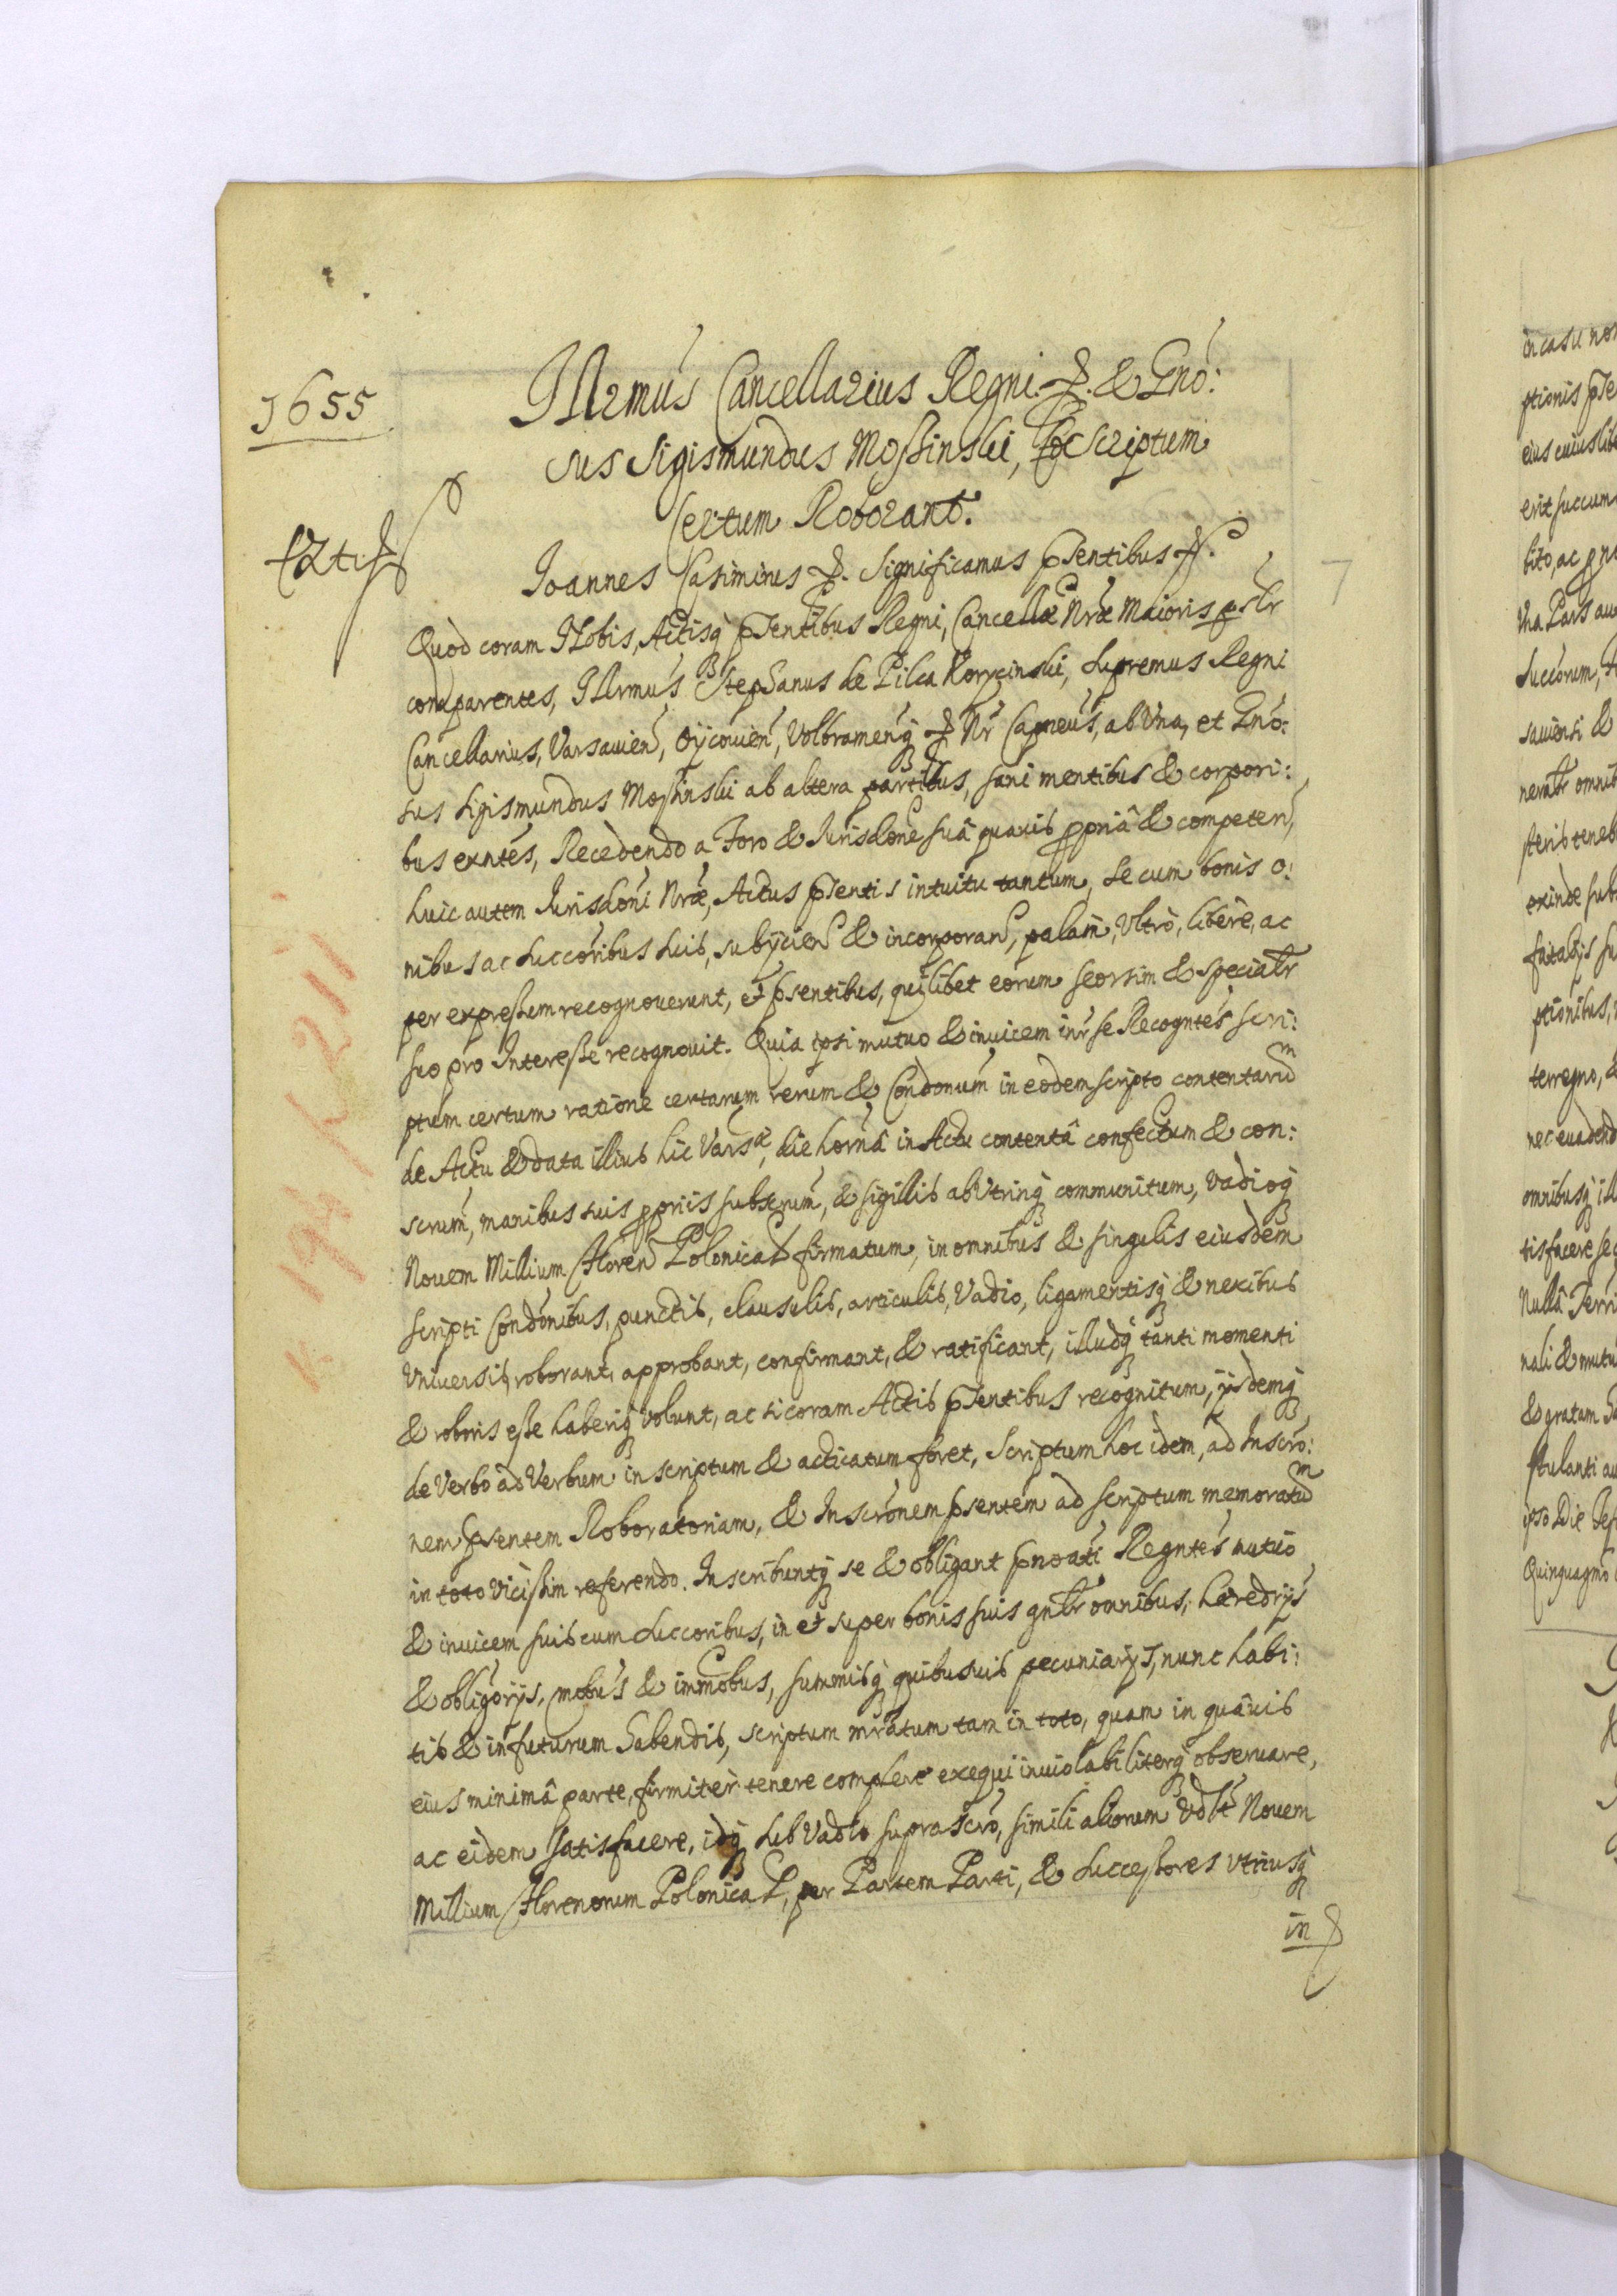 1655
Illrmus Cancellarius Regni etc. & Gno:
sus Sigismundus Moszinski, Scriptum
Certum Roborant.
Joannes Casimirus etc. Significamus psentibus etc.
7
Quod coram Nobis, Actisq psentibus Regni, Cancellæ Nræ Maioris psltr
comparentes, Illrmus Stephanus de Pilca Korycinski, Supremus Regni
Cancellarius, Varsauien, Oycouien, Volbramenq etc Nr Capneus, ab Vna, et Gno:
sus Sigismundus Moszinski ab altera partibus, sani mentibus & corpori:
bus exntes, Recedendo a Foro & Jurisdone suâ quauis ppriâ & competen,
huic autem Jurisdoni Nræ, Actus psentis intuitu tantum, se cum bonis o:
nibus ac succoribus suis, subÿcien & incorporan, palam, Vltrò, liberè, ac
per expressum recognouerunt, et psentibus, quilibet eorum seorsim & specialtr
suo pro Interesse recognouit. Quia ipsi mutuo & inuicem inr se Recogntes scri:
ptum certum ratione certarum rerum & Condonum in eodem scripto contentarum
de Actu & data illius hic Varsæ, die hornâ in Actu contentâ confectum & con:
scrum, manibus suis ppriis subscrum, & sigillis ab Vtrinq communitum, Vadioq
Nouem Millium Floren Polonical firmatum, in omnibus & singulis eiusdem
scripti Condonibus, punctis, clausulis, articulis, Vadio, ligamentisq & nexibus
Vniuersis, roborant, approbant, confirmant, & ratificant, illudq tanti momenti
& roboris esse haberiq volunt, ac si coram Actis psentibus recognitum, ÿsdemq
de Verbo ad Verbum inscriptum & acticatum foret, Scriptum hoc idem, ad Inscro:
nem psentem Roboratoriam, & Inscronem psentem ad scriptum memoratum
in toto vicissim referendo. Inscribuntq se & obligant pnoati Regntes mutuo
& inuicem suis cum succoribus, in et super bonis suis gnltr omnibus, hæredrÿs
& obligorÿs, mobus & immobus, summisq quibusuis pecuniarÿs, nunc habi:
tis & in futurum habendis, scriptum mratum tam in toto, quam in quâuis
eius minimâ parte, firmiter tenere complere exequi inuiolabiliterq obseruare,
ac eidem satisfacere, idq sub Vadio suprascro, simili aliorum Vdlt Nouem
Millium Florenorum Polonical, per Partem Parti, & Successores vtriusq
in
in casu non
ptionis pse
eius cuiuslib
erit succum
bito, ac
Vna Pars au
Succorum,
sauiensi &
neraltr omnib
steris teneb
exinde sub
fatalÿs su
ptionibus,
terregno, &
nec euadend
omnibusq ill
tisfacere seq
Nullâ Terri
nali & mutu
& gratam
stulanti au
ipso Die
Quinquagmo